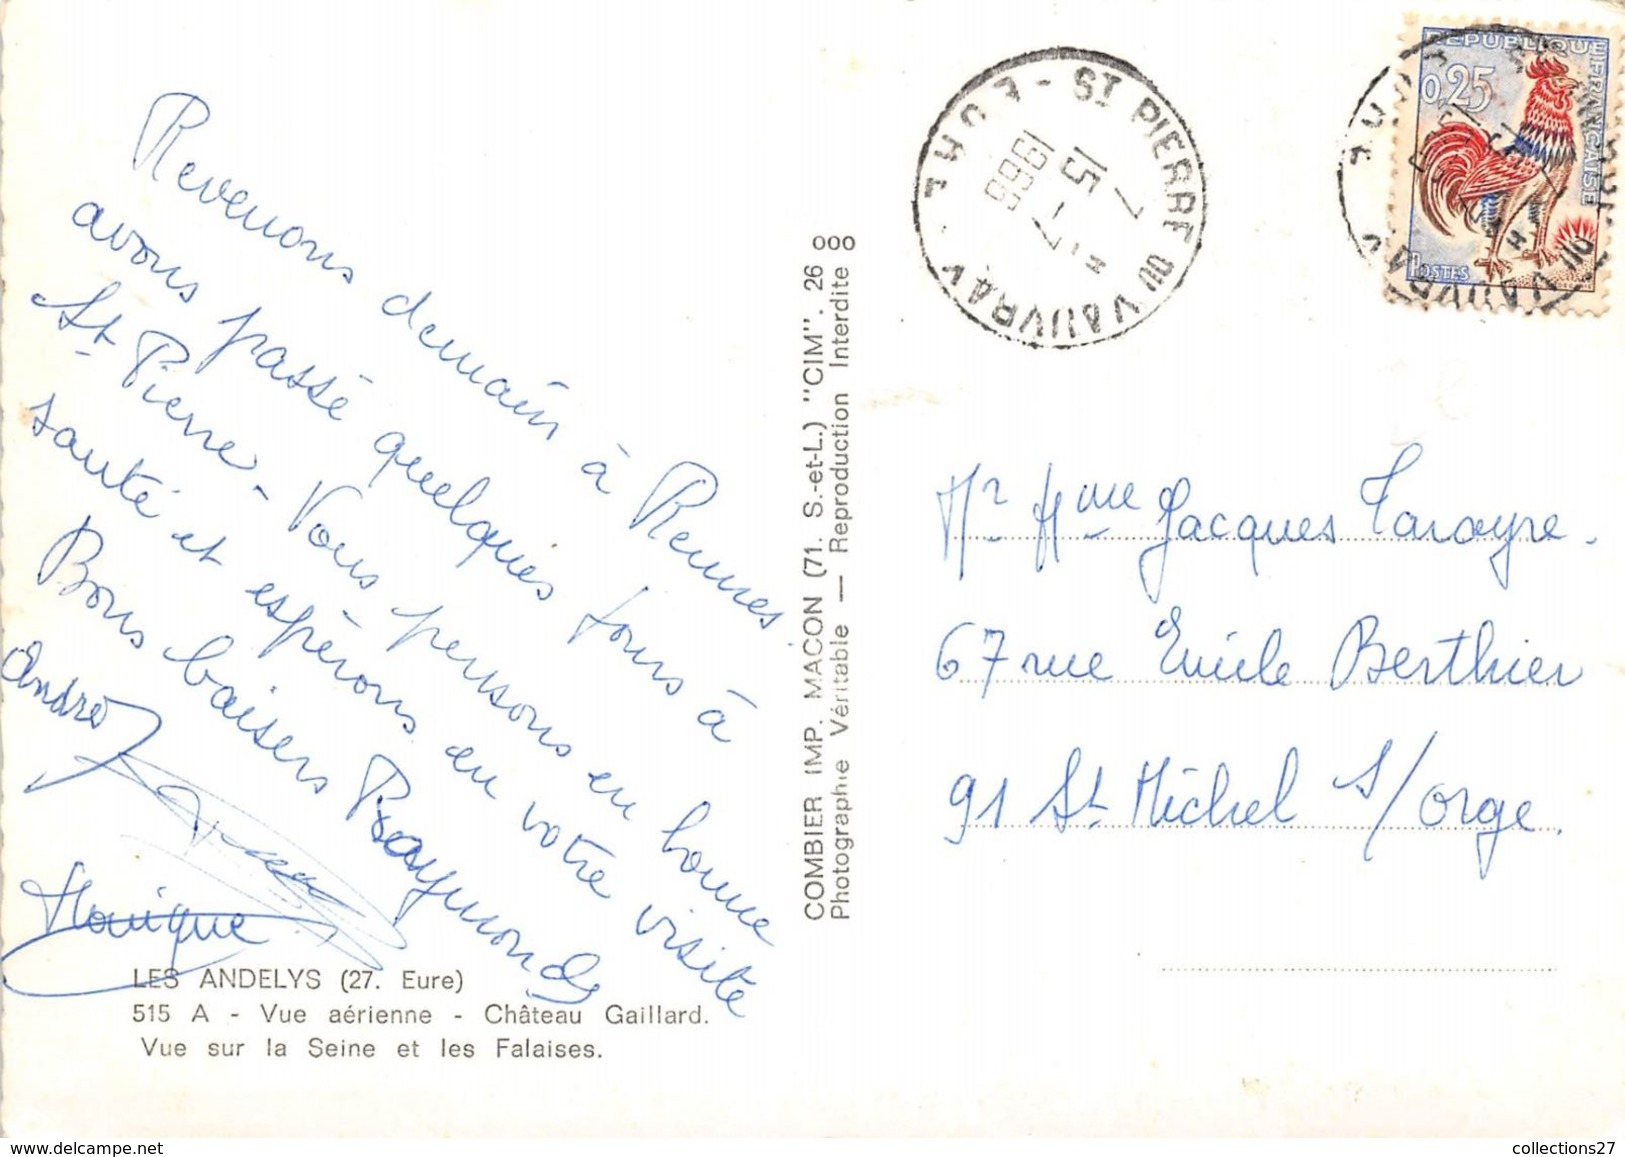 Revenons demain à Rennes.
avons passé quelques jours à
St Pierre - Vous pensons en bonne
santé et espérons en votre visite
Bons baisers Raymonde
André
Monique
LES ANDELYS (27. Eure)
515 A - Vue aérienne - Château Gaillard.
Vue sur la Seine et les Falaises.
COMBIER IMP. MACON (71. S.-et-L.) "CIM". 26 000
Photographie Véritable — Reproduction Interdite
ST PIERRE DU VAUVRAY
EURE
7 H
15 - 7
1966
REPUBLIQUE FRANÇAISE
0,25
POSTES
Mr Mme Jacques Tarayre.
67 rue Emile Berthier
91 St Michel s/orge.
collections27